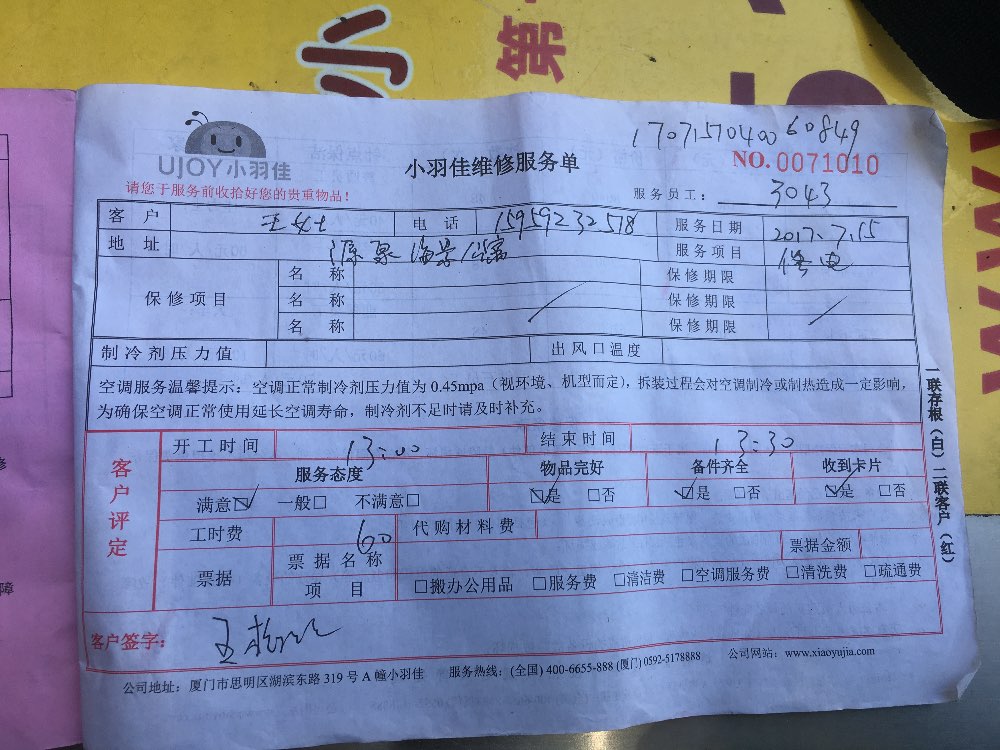 小
第
1707157040060849
UJOY小羽佳
小羽佳维修服务单
NO.0071010
请您于服务前收拾好您的贵重物品！
服务员工： 3043
客户 王女士 电话 15959232578 服务日期 2017、7.15
地址 源泉海景公寓 服务项目 修电
保修项目 名称 保修期限
名称 保修期限
名称 保修期限
制冷剂压力值 出风口温度
空调服务温馨提示：空调正常制冷剂压力值为 0.45mpa（视环境、机型而定），拆装过程会对空调制冷或制热造成一定影响，
为确保空调正常使用延长空调寿命，制冷剂不足时请及时补充。
客户评定
开工时间 13:00 结束时间 13:30
服务态度 物品完好 备件齐全 收到卡片
满意☑ 一般□ 不满意□ ☑是 □否 ☑是 □否 ☑是 □否
工时费 60 代购材料费
票据 票据名称 票据金额
项目 □搬办公用品 □服务费 □清洁费 □空调服务费 □清洗费 □疏通费
客户签字： 王
公司地址：厦门市思明区湖滨东路 319 号 A 幢小羽佳 服务热线：(全国) 400-6655-888 (厦门) 0592-5178888 公司网站：www.xiaoyujia.com
一联存根（白）二联客户（红）
障